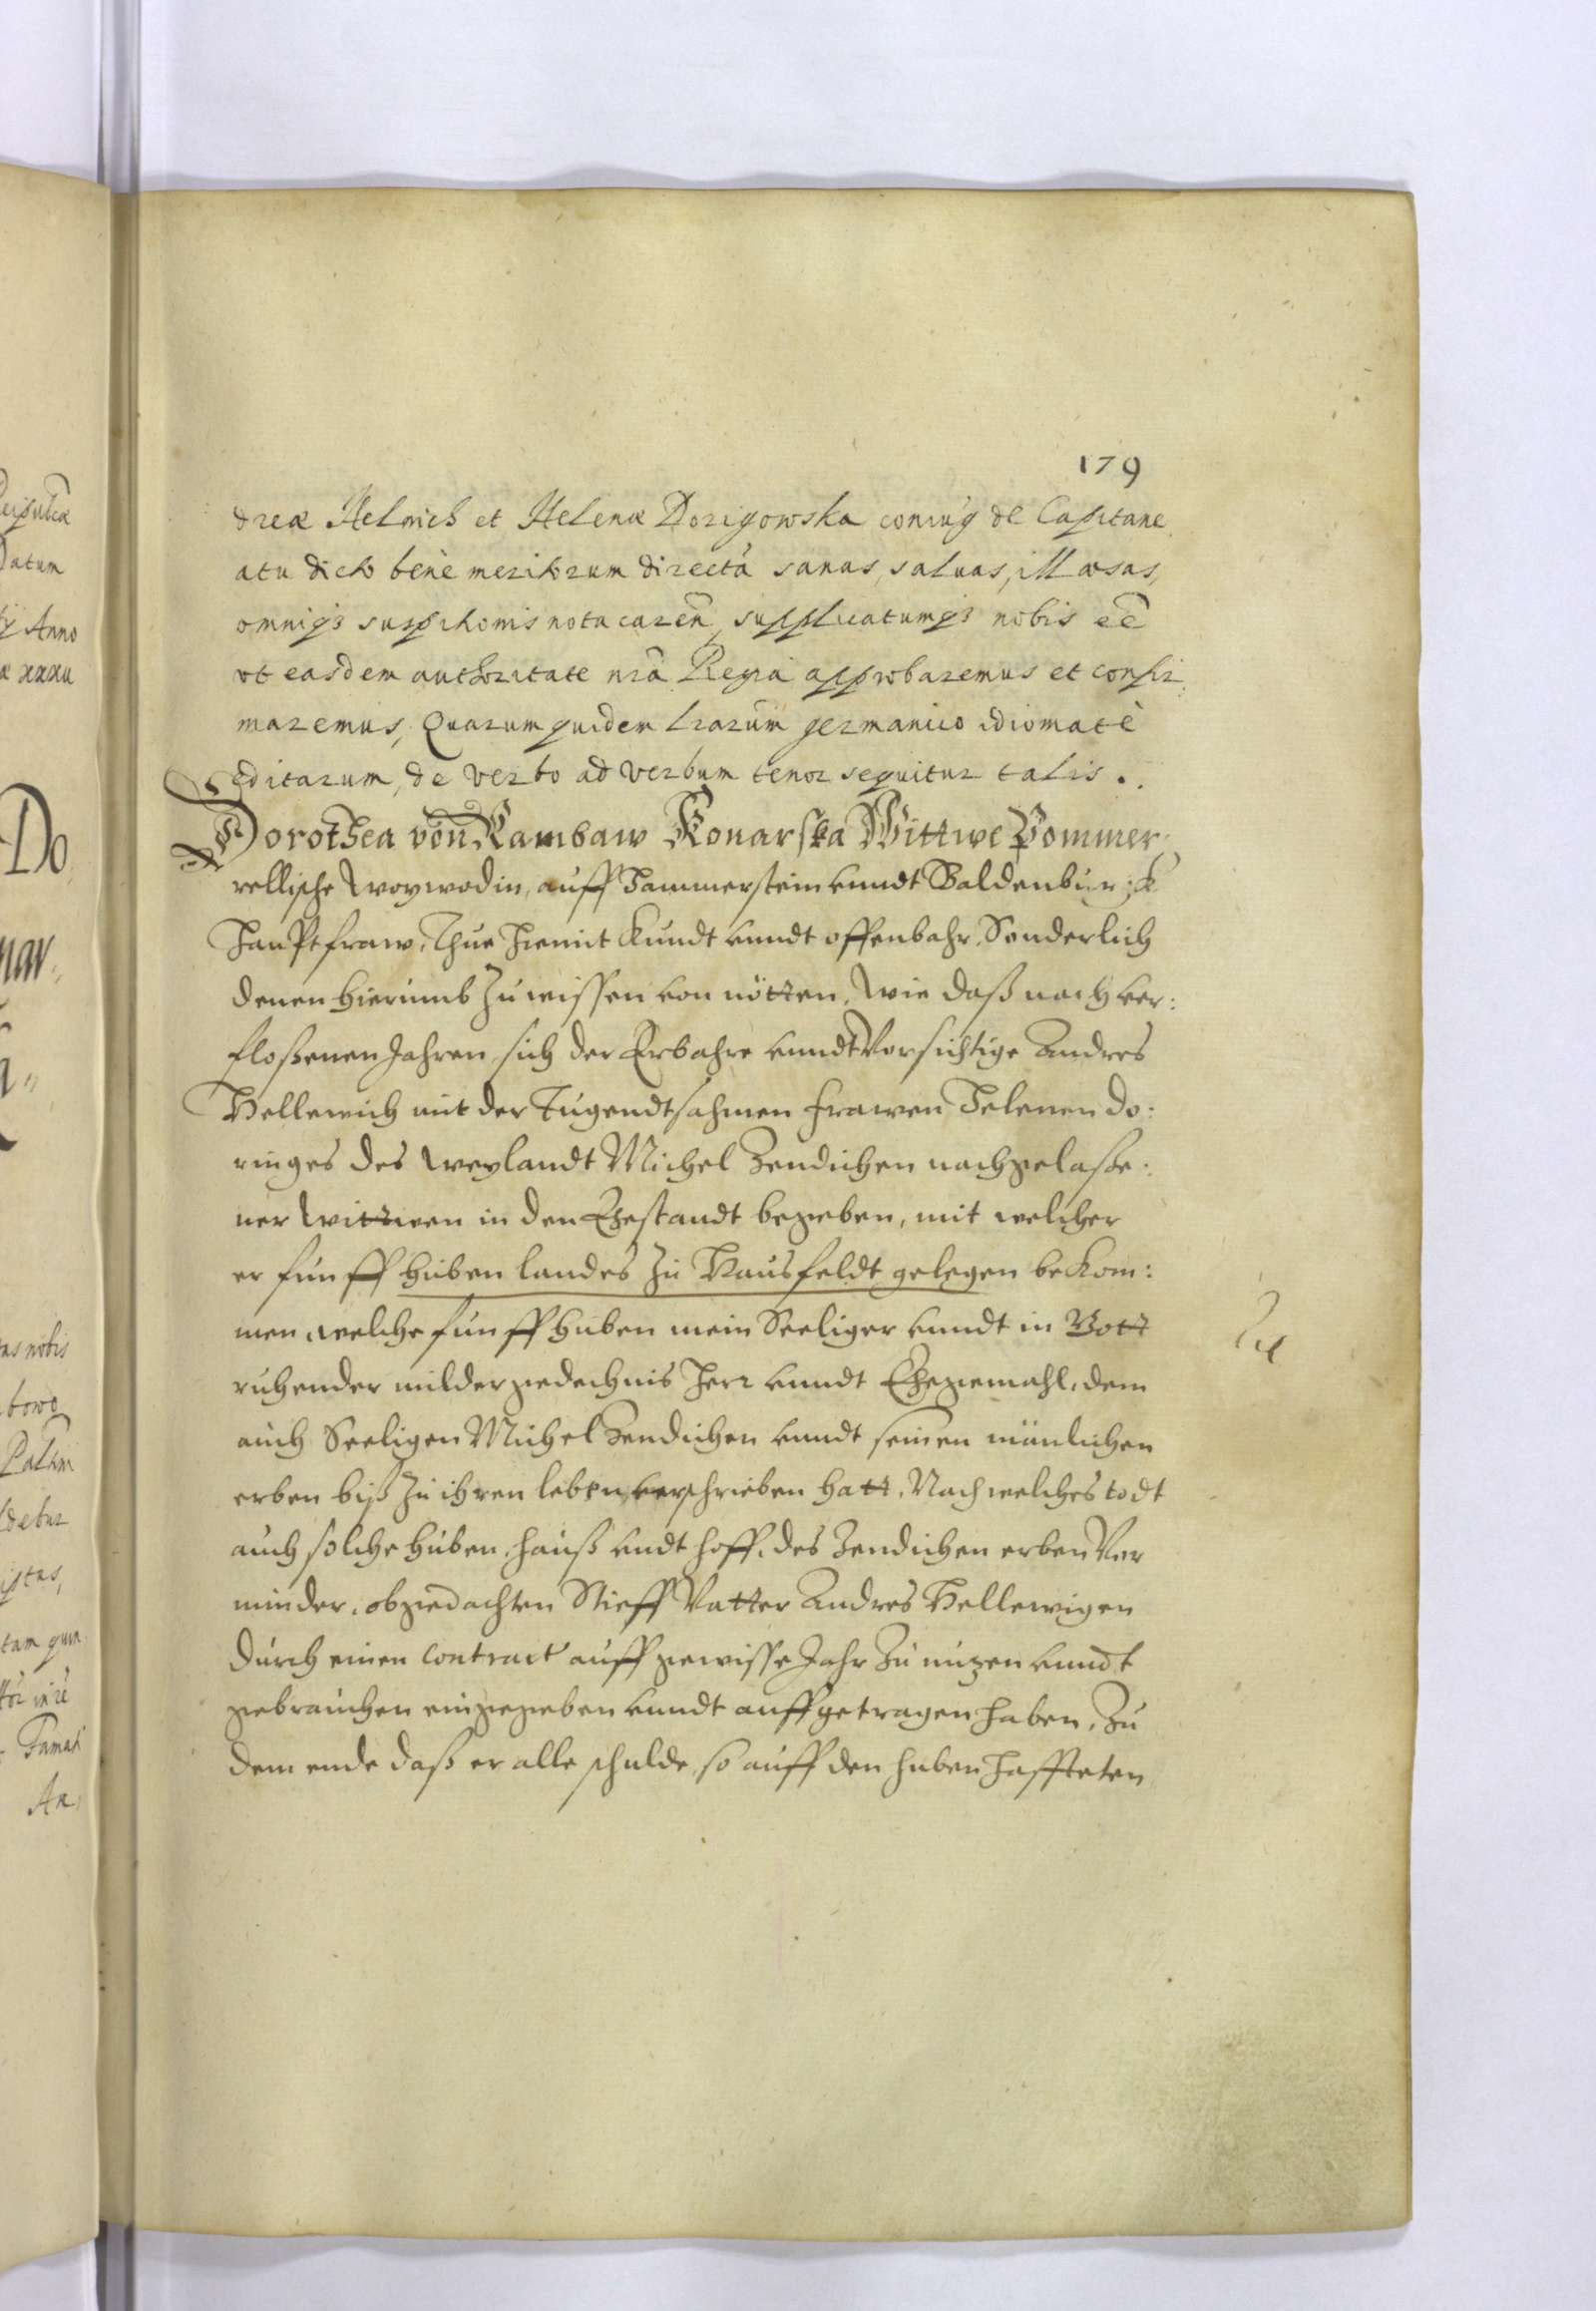 179
dreæ Helwich et Helenæ Dorigowska coniug de Capitane
atu dicto bene meritorum directa sanas, saluas, illæsas,
omniqȝ suspitionis nota caren, supplicatumqȝ nobis eē
vt easdem authoritate nrā Regia approbaremus et confir
maremus, Quarum quidem lrarum germanico idiomate
editarum, de verbo ad verbum tenor sequitur talis.
Dorothea von Kambaw Konarska Wittwe Pommer
rellische Woywodin, auff Hammerstein vnndt Baldenburgk
Hauptfraw, Thue hiemit kundt vnndt offenbahr, Sonderlich
denen hierumb zu wissen von nötten, Wie daß nach ver:
floßenen Jahren sich der Erbahre vnndt Vorsichtige Andres
Hellewich mit der Tugendtsahmen frawen Helenen Do:
ringes des Weylandt Michel Zendichen nachgelaße:
ner Wittwen in den Ehestandt begeben, mit welcher
er funff huben landes zu Hausfeldt gelegen bekom:
men, welche funff huben mein Seeliger vnndt in Gott
ruhender milder gedechnis Herr vnndt Ehegemahl, dem
auch Seeligen Michel Zendichen vnndt seinen mänlichen
erben biß zu ihren leben, verschrieben hatt. Nach welches todt
auch solche huben, hauß vndt hoff, des Zendichen erben Vor
minder, obgedachten Stieff Vatter Andres Hellewigen
durch einen contract auff gewisse Jahr zu nuzen vnndt
gebrauchen eingegeben vnndt auffgetragen haben, zu
dem ende daß er alle schulde, so auff den huben haffteten